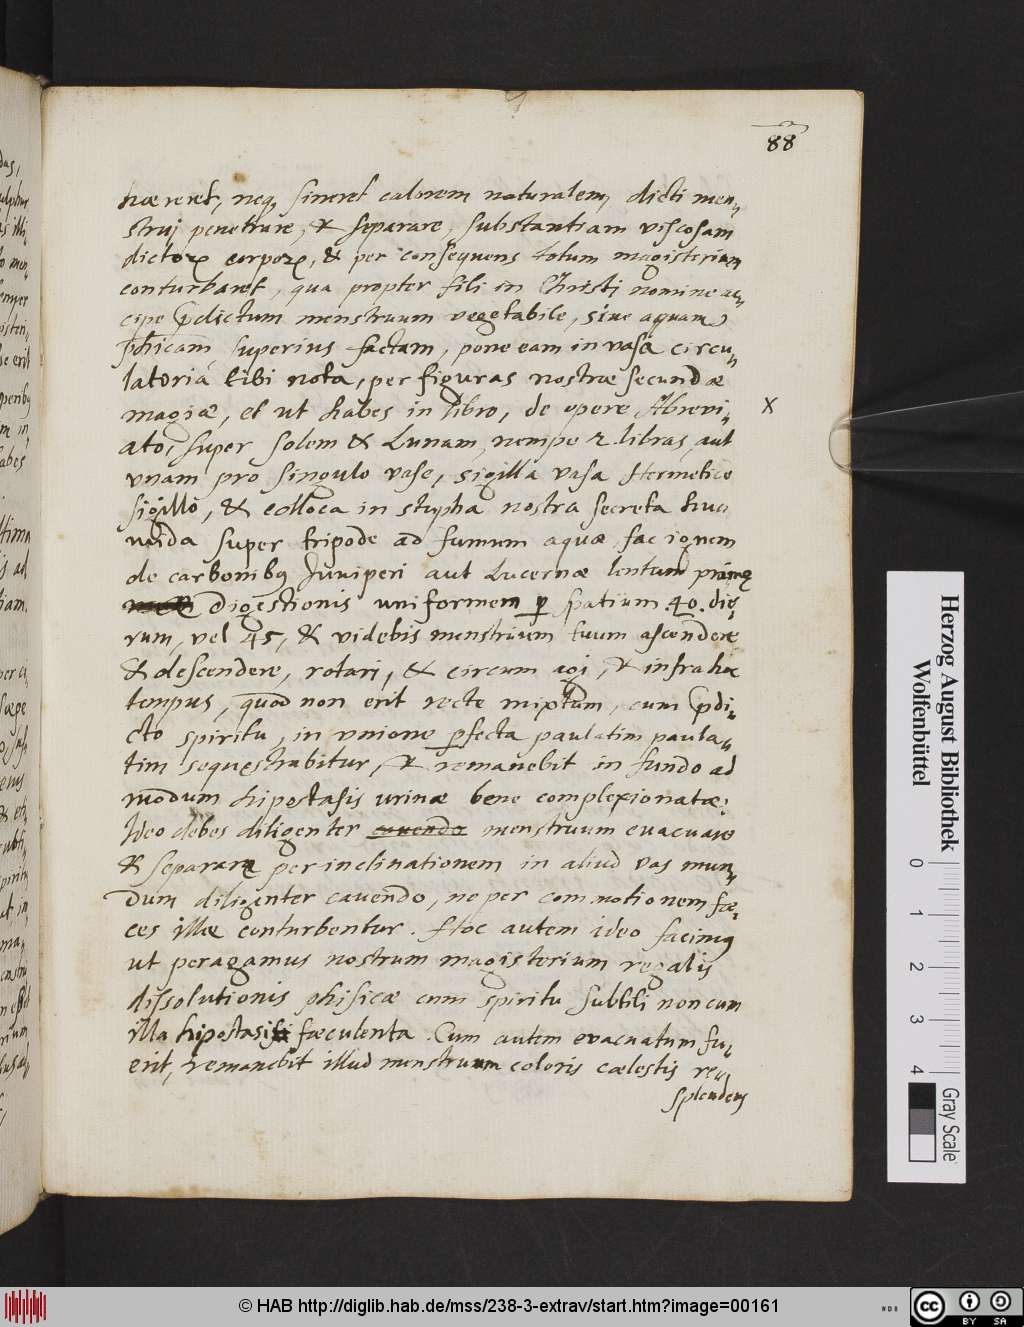 88
hæreret, neq, sineret calorem naturalem, dicti men„
strui penetrare, & separare, substantiam viscosam
dictoꝝ corpoꝝ, & per consequens totum magisterium
conturbaret, qua propter fili in Christi nomine ac„
cipe p̄dictum menstruum vegetabile, siue aquam
superius factam, pone eam in vasa circu„
latoria tibi nota, per figuras nostræ secundæ
magiæ, et ut habes in libro, de opere Abrevi„
X
ato, super Solem & Lunam, nempe 2 libras, aut
vnam pro singulo vase, sigilla vasa Hermetico
sigillo, & colloca in stupha nostra secreta hu„
mida super tripode ad fumum aquæ, fac ignem
de carbonibꝰ Juniperi aut Lucernæ lentum primæ
digestionis uniformem ꝑ spatium .40. die„
rum, vel 45, & videbis menstruum tuum ascendere
& descendere, rotari, & circum agi, & infra hoc
tempus, quod non erit recte mixtum, cum p̄di„
cto spiritu, in vnione ꝑfecta paulatim paula„
tim sequestrabitur, & remanebit in fundo ad
modum hipostasis urinæ bene complexionatæ:
Ideo debes diligenter cauendo menstruum evacuare
& separare per inclinationem in aliud vas mun„
dum diligenter cavendo, ne per commotionem fæ„
ces illæ conturbentur. Hoc autem ideo facimꝰ
ut peragamus nostrum magisterium regalis
dissolutionis phisicæ cum spiritu subtili non cum
illa hipostasi fæculenta. Cum autem evacuatum fu„
erit, remanebit illud menstruum coloris cælestis re„
splendens
Herzog August Bibliothek
Wolfenbüttel
0 1 2 3 4
Gray Scale
© HAB http://diglib.hab.de/mss/238-3-extrav/start.htm?image=00161
cc BY SA